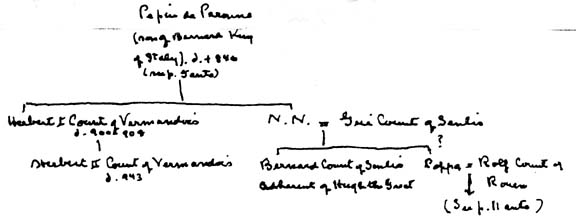 Pepin de Peronne
(son of Bernard King
of Italy). d. + 840
(sup. 5 ante)
Herbert I Count of Vermandois
d. 900 x 908
N. N. = Gui Count of Senlis
?
Herbert II Count of Vermandois
d. 943
Bernard Count of Senlis
adherent of Hugh the Great
Poppa = Rolf Count of
Rouen
(See p. 11 ante)